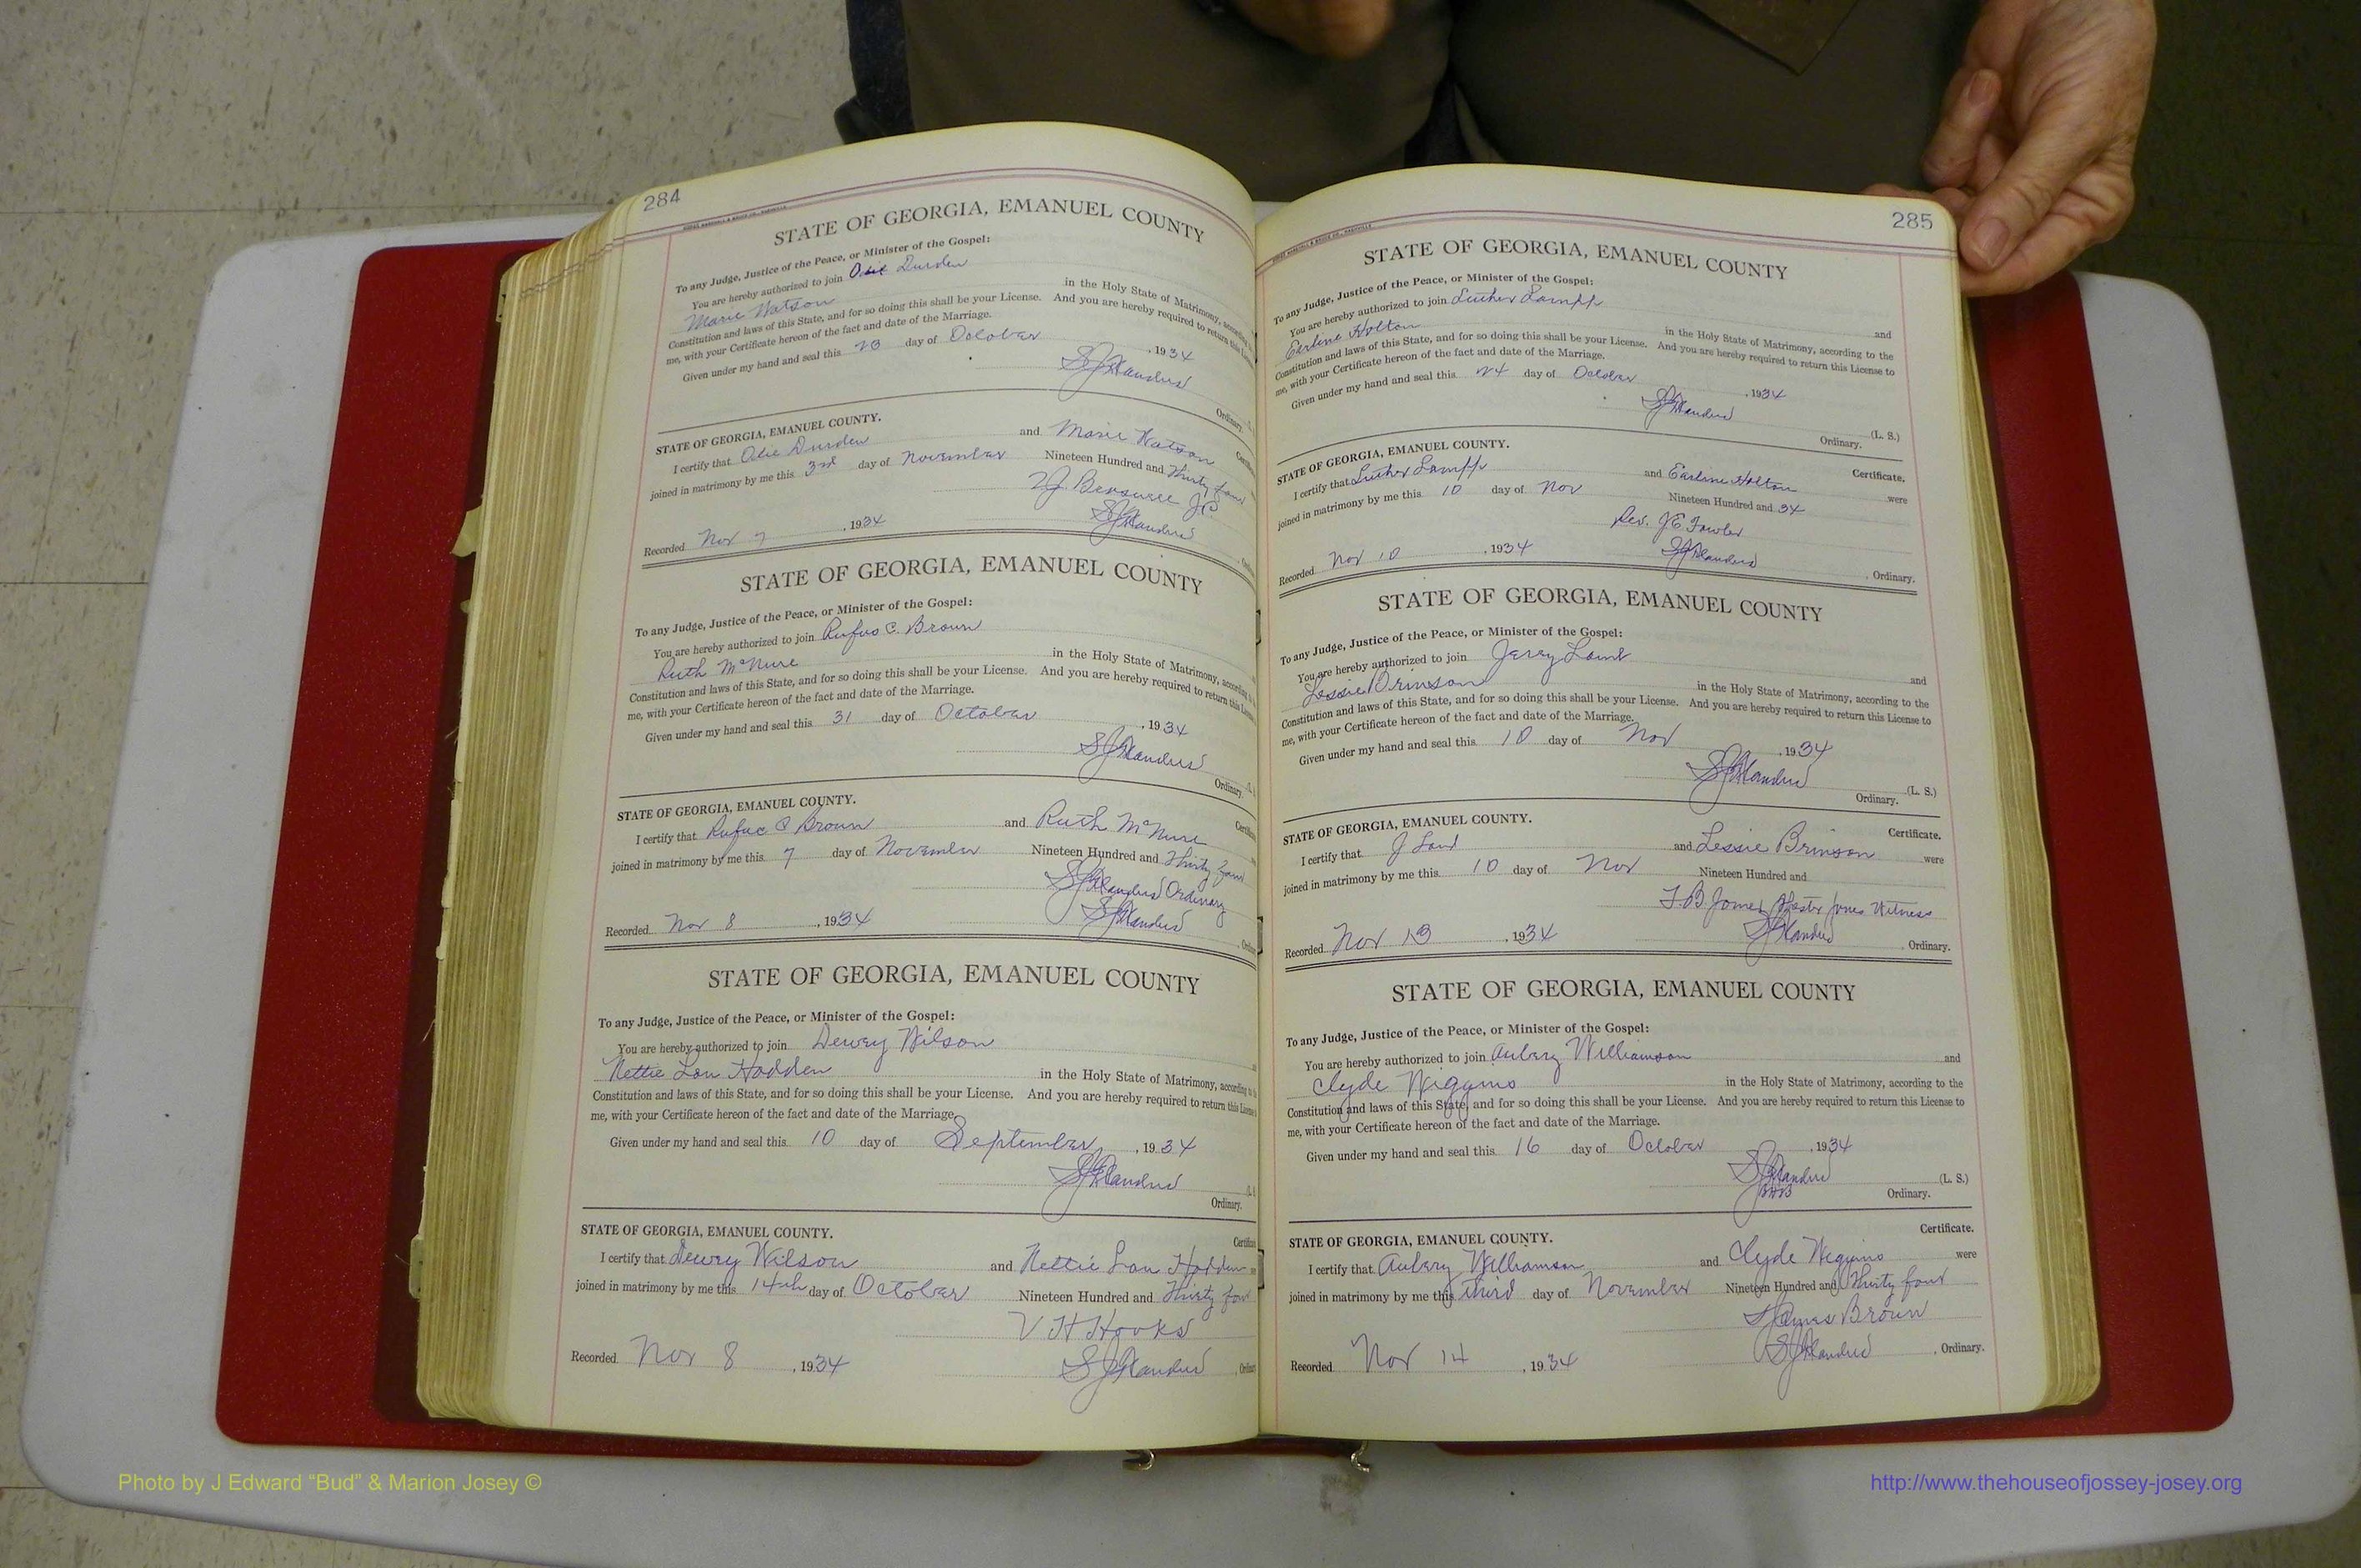 284
STATE OF GEORGIA, EMANUEL COUNTY
To any Judge, Justice of the Peace, or Minister of the Gospel:
You are hereby authorized to join Odie Durden
Marie Watson in the Holy State of Matrimony, according
Constitution and laws of this State, and for so doing this shall be your License. And you are hereby required to return this
me, with your Certificate hereon of the fact and date of the Marriage.
Given under my hand and seal this 23 day of October, 1934
Ordinary.
STATE OF GEORGIA, EMANUEL COUNTY.
I certify that Odie Durden and Marie Watson
joined in matrimony by me this 3rd day of November Nineteen Hundred and Thirty four
J.P.
Recorded Nov 7, 1934
STATE OF GEORGIA, EMANUEL COUNTY
To any Judge, Justice of the Peace, or Minister of the Gospel:
You are hereby authorized to join Rufus C. Brown
Ruth McNure in the Holy State of Matrimony, according
Constitution and laws of this State, and for so doing this shall be your License. And you are hereby required to return this
me, with your Certificate hereon of the fact and date of the Marriage.
Given under my hand and seal this 31 day of October, 1934
Ordinary.
STATE OF GEORGIA, EMANUEL COUNTY.
I certify that Rufus C Brown and Ruth McNure
joined in matrimony by me this 7 day of November Nineteen Hundred and Thirty four
Ordinary
Recorded Nov 8, 1934
STATE OF GEORGIA, EMANUEL COUNTY
To any Judge, Justice of the Peace, or Minister of the Gospel:
You are hereby authorized to join Dewey Wilson
Nettie Lou Hadden in the Holy State of Matrimony, according
Constitution and laws of this State, and for so doing this shall be your License. And you are hereby required to return this License
me, with your Certificate hereon of the fact and date of the Marriage.
Given under my hand and seal this 10 day of September, 1934
Ordinary.
STATE OF GEORGIA, EMANUEL COUNTY.
I certify that Dewey Wilson and Nettie Lou Hadden
joined in matrimony by me this 14th day of October Nineteen Hundred and Thirty four
V H Hooks
Recorded Nov 8, 1934
285
STATE OF GEORGIA, EMANUEL COUNTY
To any Judge, Justice of the Peace, or Minister of the Gospel:
You are hereby authorized to join Luther Lampp and
Earline Holton in the Holy State of Matrimony, according to the
Constitution and laws of this State, and for so doing this shall be your License. And you are hereby required to return this License to
me, with your Certificate hereon of the fact and date of the Marriage.
Given under my hand and seal this 24 day of October, 1934
(L. S.)
Ordinary.
STATE OF GEORGIA, EMANUEL COUNTY. Certificate.
I certify that Luther Lampp and Earline Holton were
joined in matrimony by me this 10 day of Nov Nineteen Hundred and 34
Rev. J E Fowler
Recorded Nov 10, 1934 Ordinary.
STATE OF GEORGIA, EMANUEL COUNTY
To any Judge, Justice of the Peace, or Minister of the Gospel:
You are hereby authorized to join Jerry Lamb and
Lessie Brinson in the Holy State of Matrimony, according to the
Constitution and laws of this State, and for so doing this shall be your License. And you are hereby required to return this License to
me, with your Certificate hereon of the fact and date of the Marriage.
Given under my hand and seal this 10 day of Nov, 1934
(L. S.)
Ordinary.
STATE OF GEORGIA, EMANUEL COUNTY. Certificate.
I certify that J and Lessie Brinson were
joined in matrimony by me this 10 day of Nov Nineteen Hundred and
Jones Witness
Recorded Nov 13, 1934 Ordinary.
STATE OF GEORGIA, EMANUEL COUNTY
To any Judge, Justice of the Peace, or Minister of the Gospel:
You are hereby authorized to join Aubery Williamson and
Clyde Wiggins in the Holy State of Matrimony, according to the
Constitution and laws of this State, and for so doing this shall be your License. And you are hereby required to return this License to
me, with your Certificate hereon of the fact and date of the Marriage.
Given under my hand and seal this 16 day of October, 1934
(L. S.)
Ordinary.
STATE OF GEORGIA, EMANUEL COUNTY. Certificate.
I certify that Aubery Williamson and Clyde Wiggins were
joined in matrimony by me this third day of November Nineteen Hundred and Thirty four
Brown
Recorded Nov 14, 1934 Ordinary.
Photo by J Edward “Bud” & Marion Josey ©
http://www.thehouseofjossey-josey.org